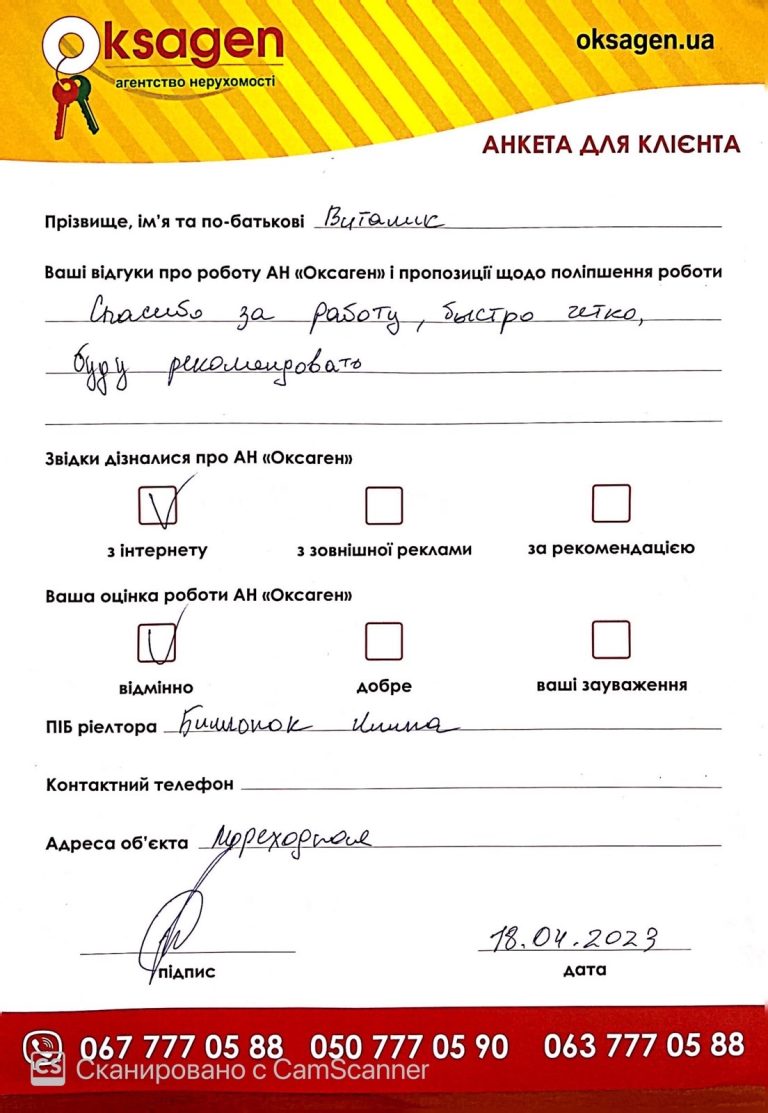 Oksagen
агентство нерухомості
oksagen.ua
АНКЕТА ДЛЯ КЛІЄНТА
Прізвище, ім'я та по-батькові Виталик
Ваші відгуки про роботу АН «Оксаген» і пропозиції щодо поліпшення роботи
Спасибо за работу, быстро четко,
буду рекомендовать
Звідки дізналися про АН «Оксаген»
з інтернету з зовнішної реклами за рекомендацією
Ваша оцінка роботи АН «Оксаген»
відмінно добре ваші зауваження
ПІБ ріелтора
Контактний телефон
Адреса об'єкта Мореходная
18.04.2023
підпис дата
067 777 05 88 050 777 05 90 063 777 05 88
CS Сканировано с CamScanner